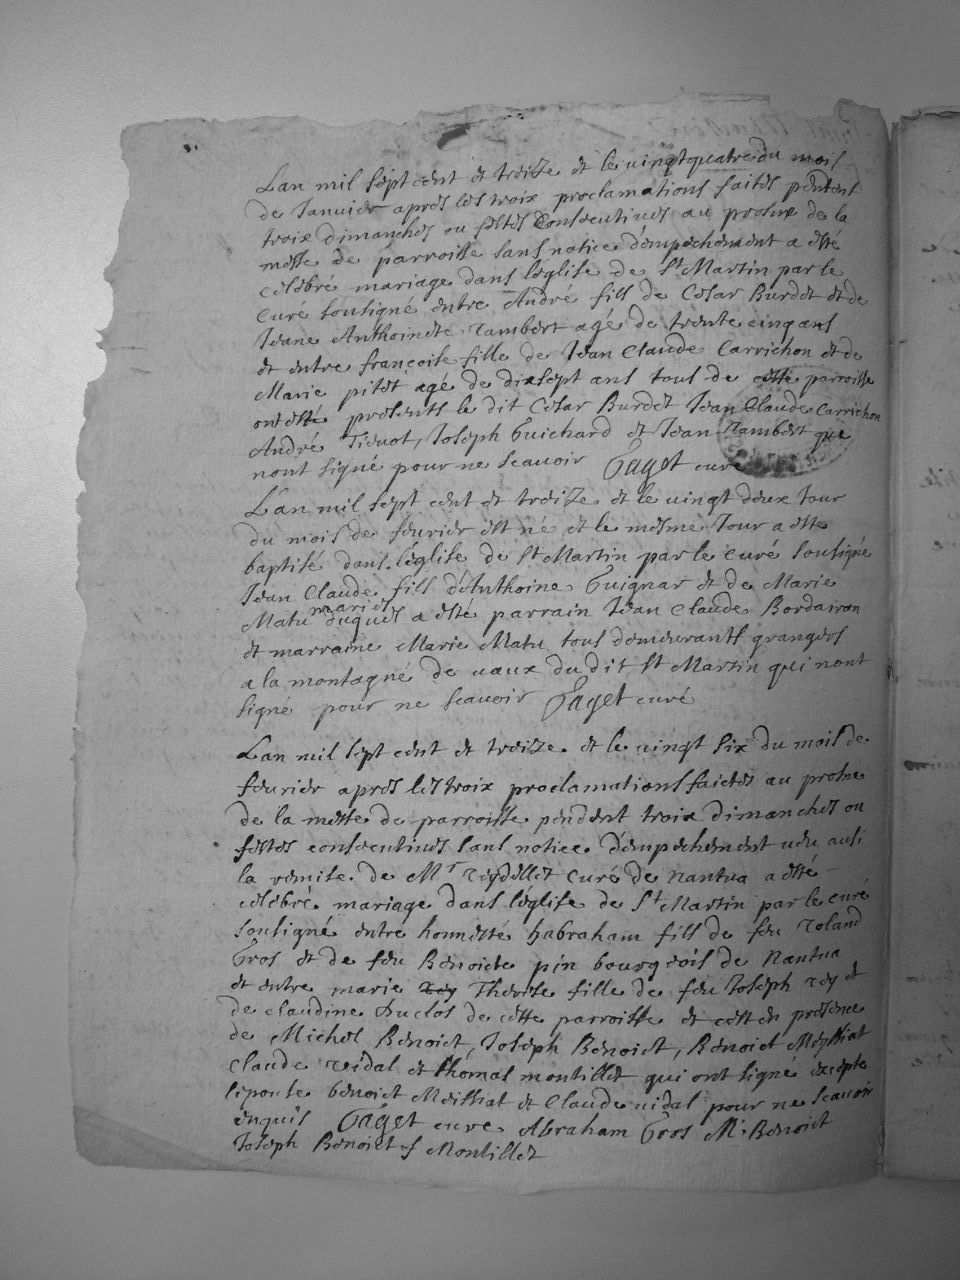 Lan mil sept cent et treize et le vingtquatre du mois
de Januier apres les trois proclamations faites pendent
trois dimanches ou festes consecutiues au prosne de la
messe de parroisse sans notice d'empechement a esté
célébré mariage dans léglise de St Martin par le
curé sousigné entre André fils de César Burdet et de
Jeane Anthoinette rambert agé de trente cinq ans
et entre françoise fille de Jean Claude Carrichon et de
Marie pitet agé de dixsept ans tous de cette parroisse
ont esté présents le dit César Burdet Jean Claude Carrichon
André Tieuot, Joseph Guichard et Jean Rambert que
nont signé pour ne scauoir Paget curé
Lan mil sept cent et treize et le vingt deux Jour
du mois de féurier est né et le mesme Jour a esté
baptisé dans léglise de St Martin par le curé sousigné
Jean Claude fils d'Anthoine Guignar et de Marie
mariés
Matu duquels a esté parrain Jean Claude Bordairon
et marraine Marie Matu tous demeurants grangers
a la montagne de uaux du dit St Martin qui nont
signé pour ne scauoir Paget curé
Lan mil sept cent et treize et le vingt six du mois de
féurier apres les trois proclamations faictes au prosne
de la messe de parroisse pendent trois dimanches ou
festes consecutiues sans notice d'empechement ueu ausi
la remise de Mr reydellet curé de nantua a esté
célébré mariage dans léglise de St Martin par le curé
sousigné entre honnesté habraham fils de feu roland
Gros et de feu Benoicte pin bourgeois de nantua
et entre marie rey Therese fille de feu Joseph rey et
de claudine Duclos de cette parroisse et cest en présence
de Michel Benoict, Joseph Benoict, Benoict Meyssiat
Claude vidal et thomas montillet qui ont signé excepté
lépouse benoict Meissiat et Claude vidal pour ne scauoir
enquis Paget curé Abraham Gros M. Benoict
Joseph Benoict f Montillet